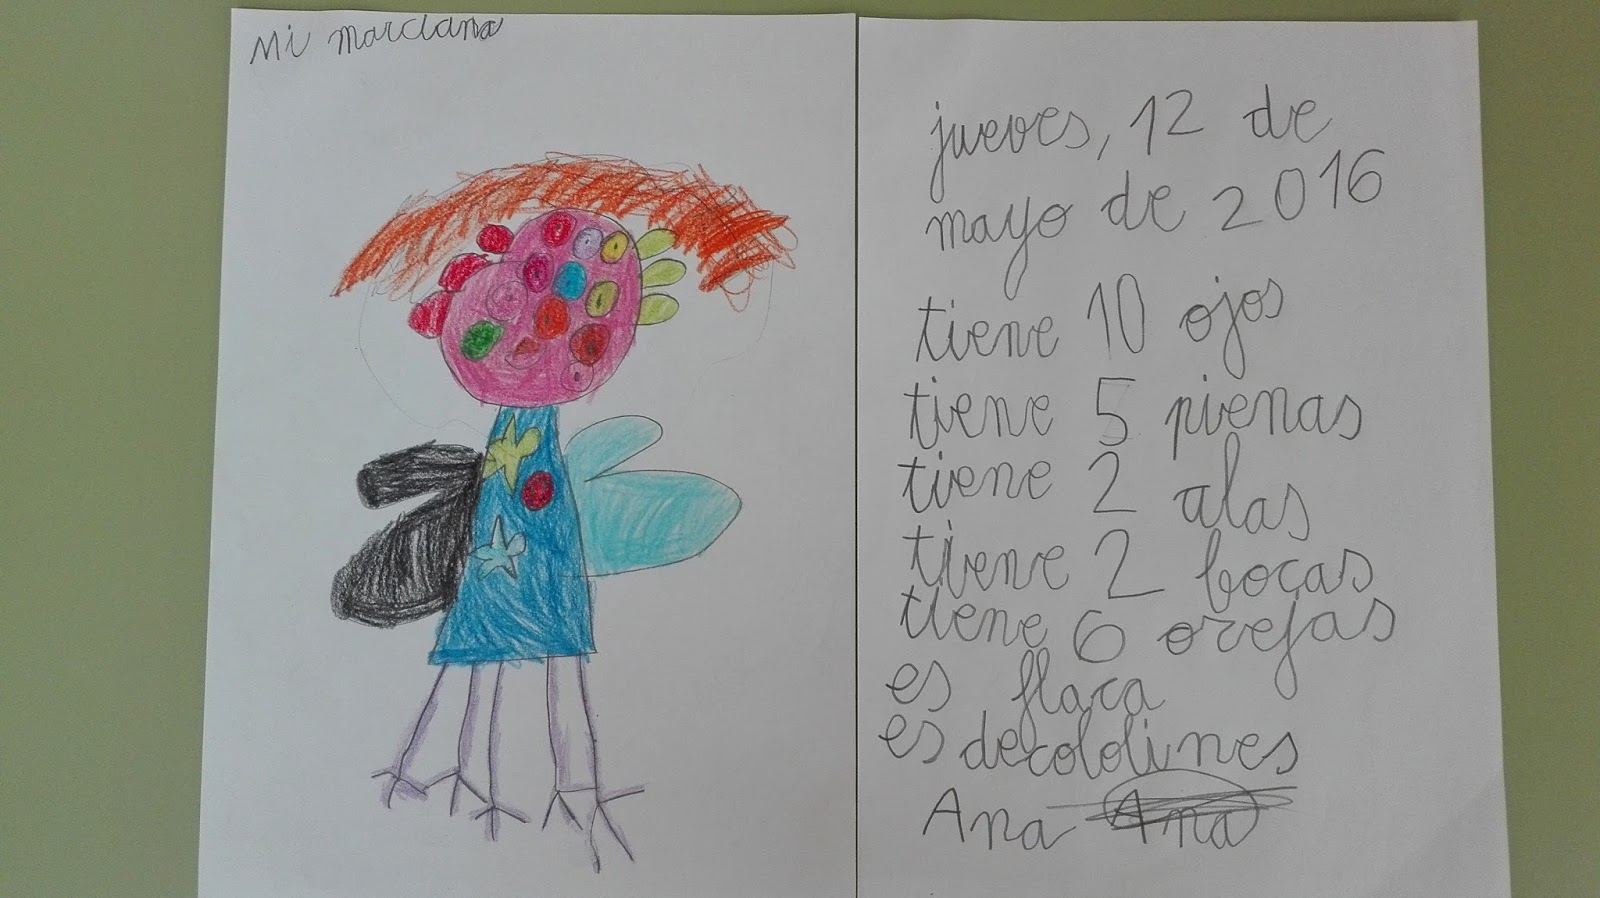 Mi marciana
jueves, 12 de
mayo de 2016
tiene 10 ojos
tiene 5 pienas
tiene 2 alas
tiene 2 bocas
tiene 6 orejas
es flaca
es decololines
Ana Ana